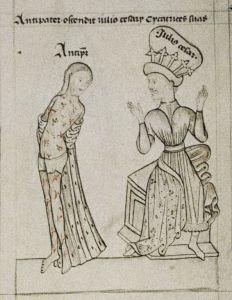 Antipater ostendit iulio cesary Cycatrices suas
Antipr
Julio cesar